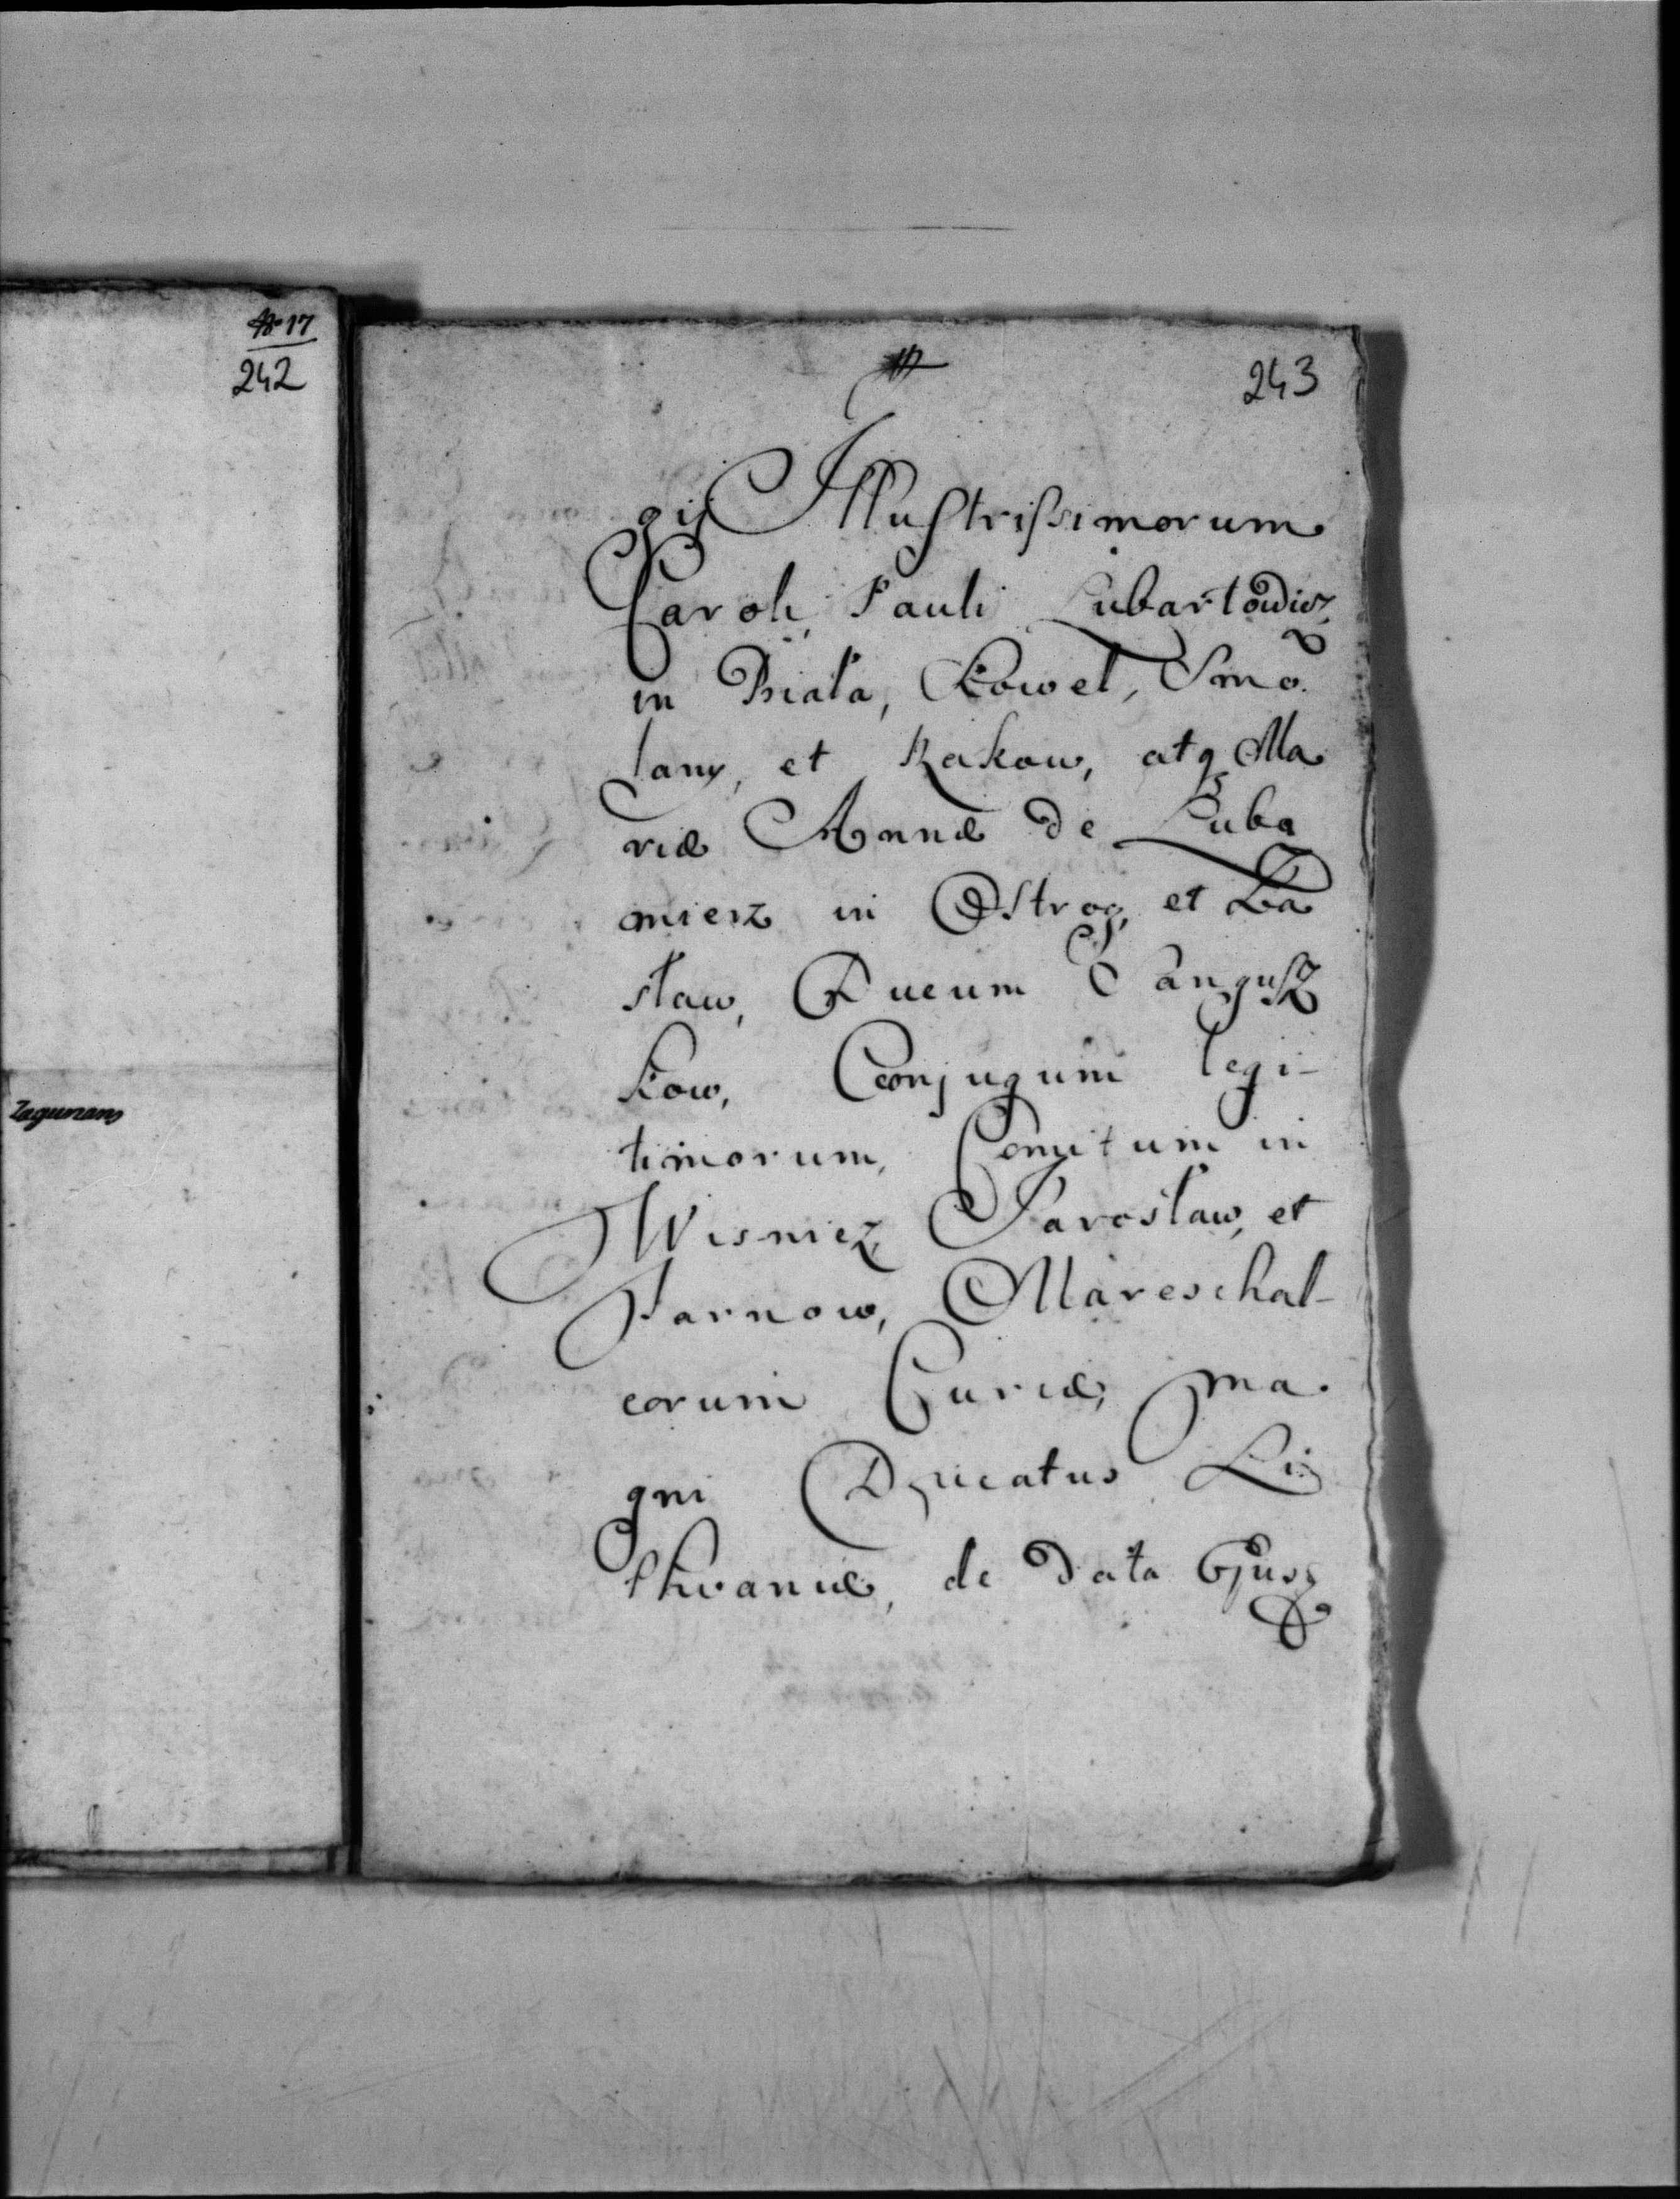 242
Zagunany
243
gij Illustrissimorum
Caroli Pauli Lubartowicz,
in Biała, Kowel, Smo
lany, et Rakow, atq Ma
riæ Annæ de Luba
mierz in Ostrog, et Za
sław, Ducum Sangusz
kow, Conjugum legi-
timorum, Comitum in
Wisnicz, Jarosław, et
Tarnow, Mareschal-
corum Curiæ, ma
gni Ducatus Li
thvaniæ, de data Ejus